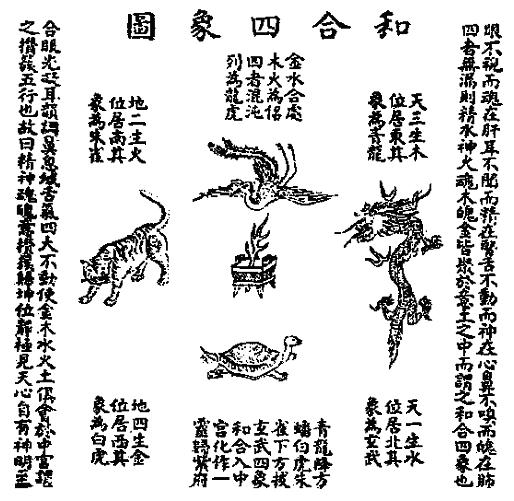 和合四象圖
眼不視而魂在肝耳不聞而精在腎舌不動而神在心鼻不嗅而魄在肺
四者無漏則精水神火魂木魄金皆聚於意土之中而謂之和合四象也
天三生木
位居東其
象為青龍
金水合處
木火為侶
四者混沌
列為龍虎
地二生火
位居南其
象為朱雀
天一生水
位居北其
象為玄武
青龍降方
蟠白虎朱
雀下方拔
玄武四象
和合入中
宮化作一
靈歸紫府
地四生金
位居西其
象為白虎
含眼光凝耳韻調鼻息緘舌氣四大不動使金木水火土俱會於中宮謂
之攢簇五行也故曰精神魂魄意攢簇歸坤位靜極見天心自有神明至